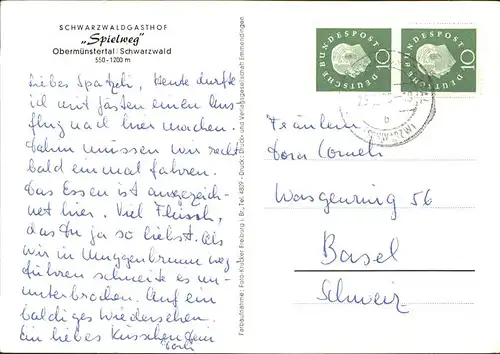 SCHWARZWALDGASTHOF
„Spielweg"
Obermünstertal/Schwarzwald
550-1200 m
Liebes Spatzeli, Heute durfte
ich mit Gästen einen Aus-
flug nach hier machen.
Dahin müssen wir recht
bald einmal fahren.
Das Essen ist ausgezeich-
net hier. Viel Fleisch,
das Du ja so liebst. Als
wir in Muggenbrunn weg
fuhren schneite es un-
unterbrochen. Auf ein
baldiges Wiedersehen.
Ein liebes Küsschen Dein
Farbaufnahme: Foto-Klinzker Freiburg i. Br., Tel. 4829 - Druck: Druck- und Verlagsgesellschaft Emmendingen
DEUTSCHE BUNDESPOST
10
DEUTSCHE BUNDESPOST
10
b
(SCHWARZW)
Fräulein
Dora
Wasgenring 56
Basel
Schweiz